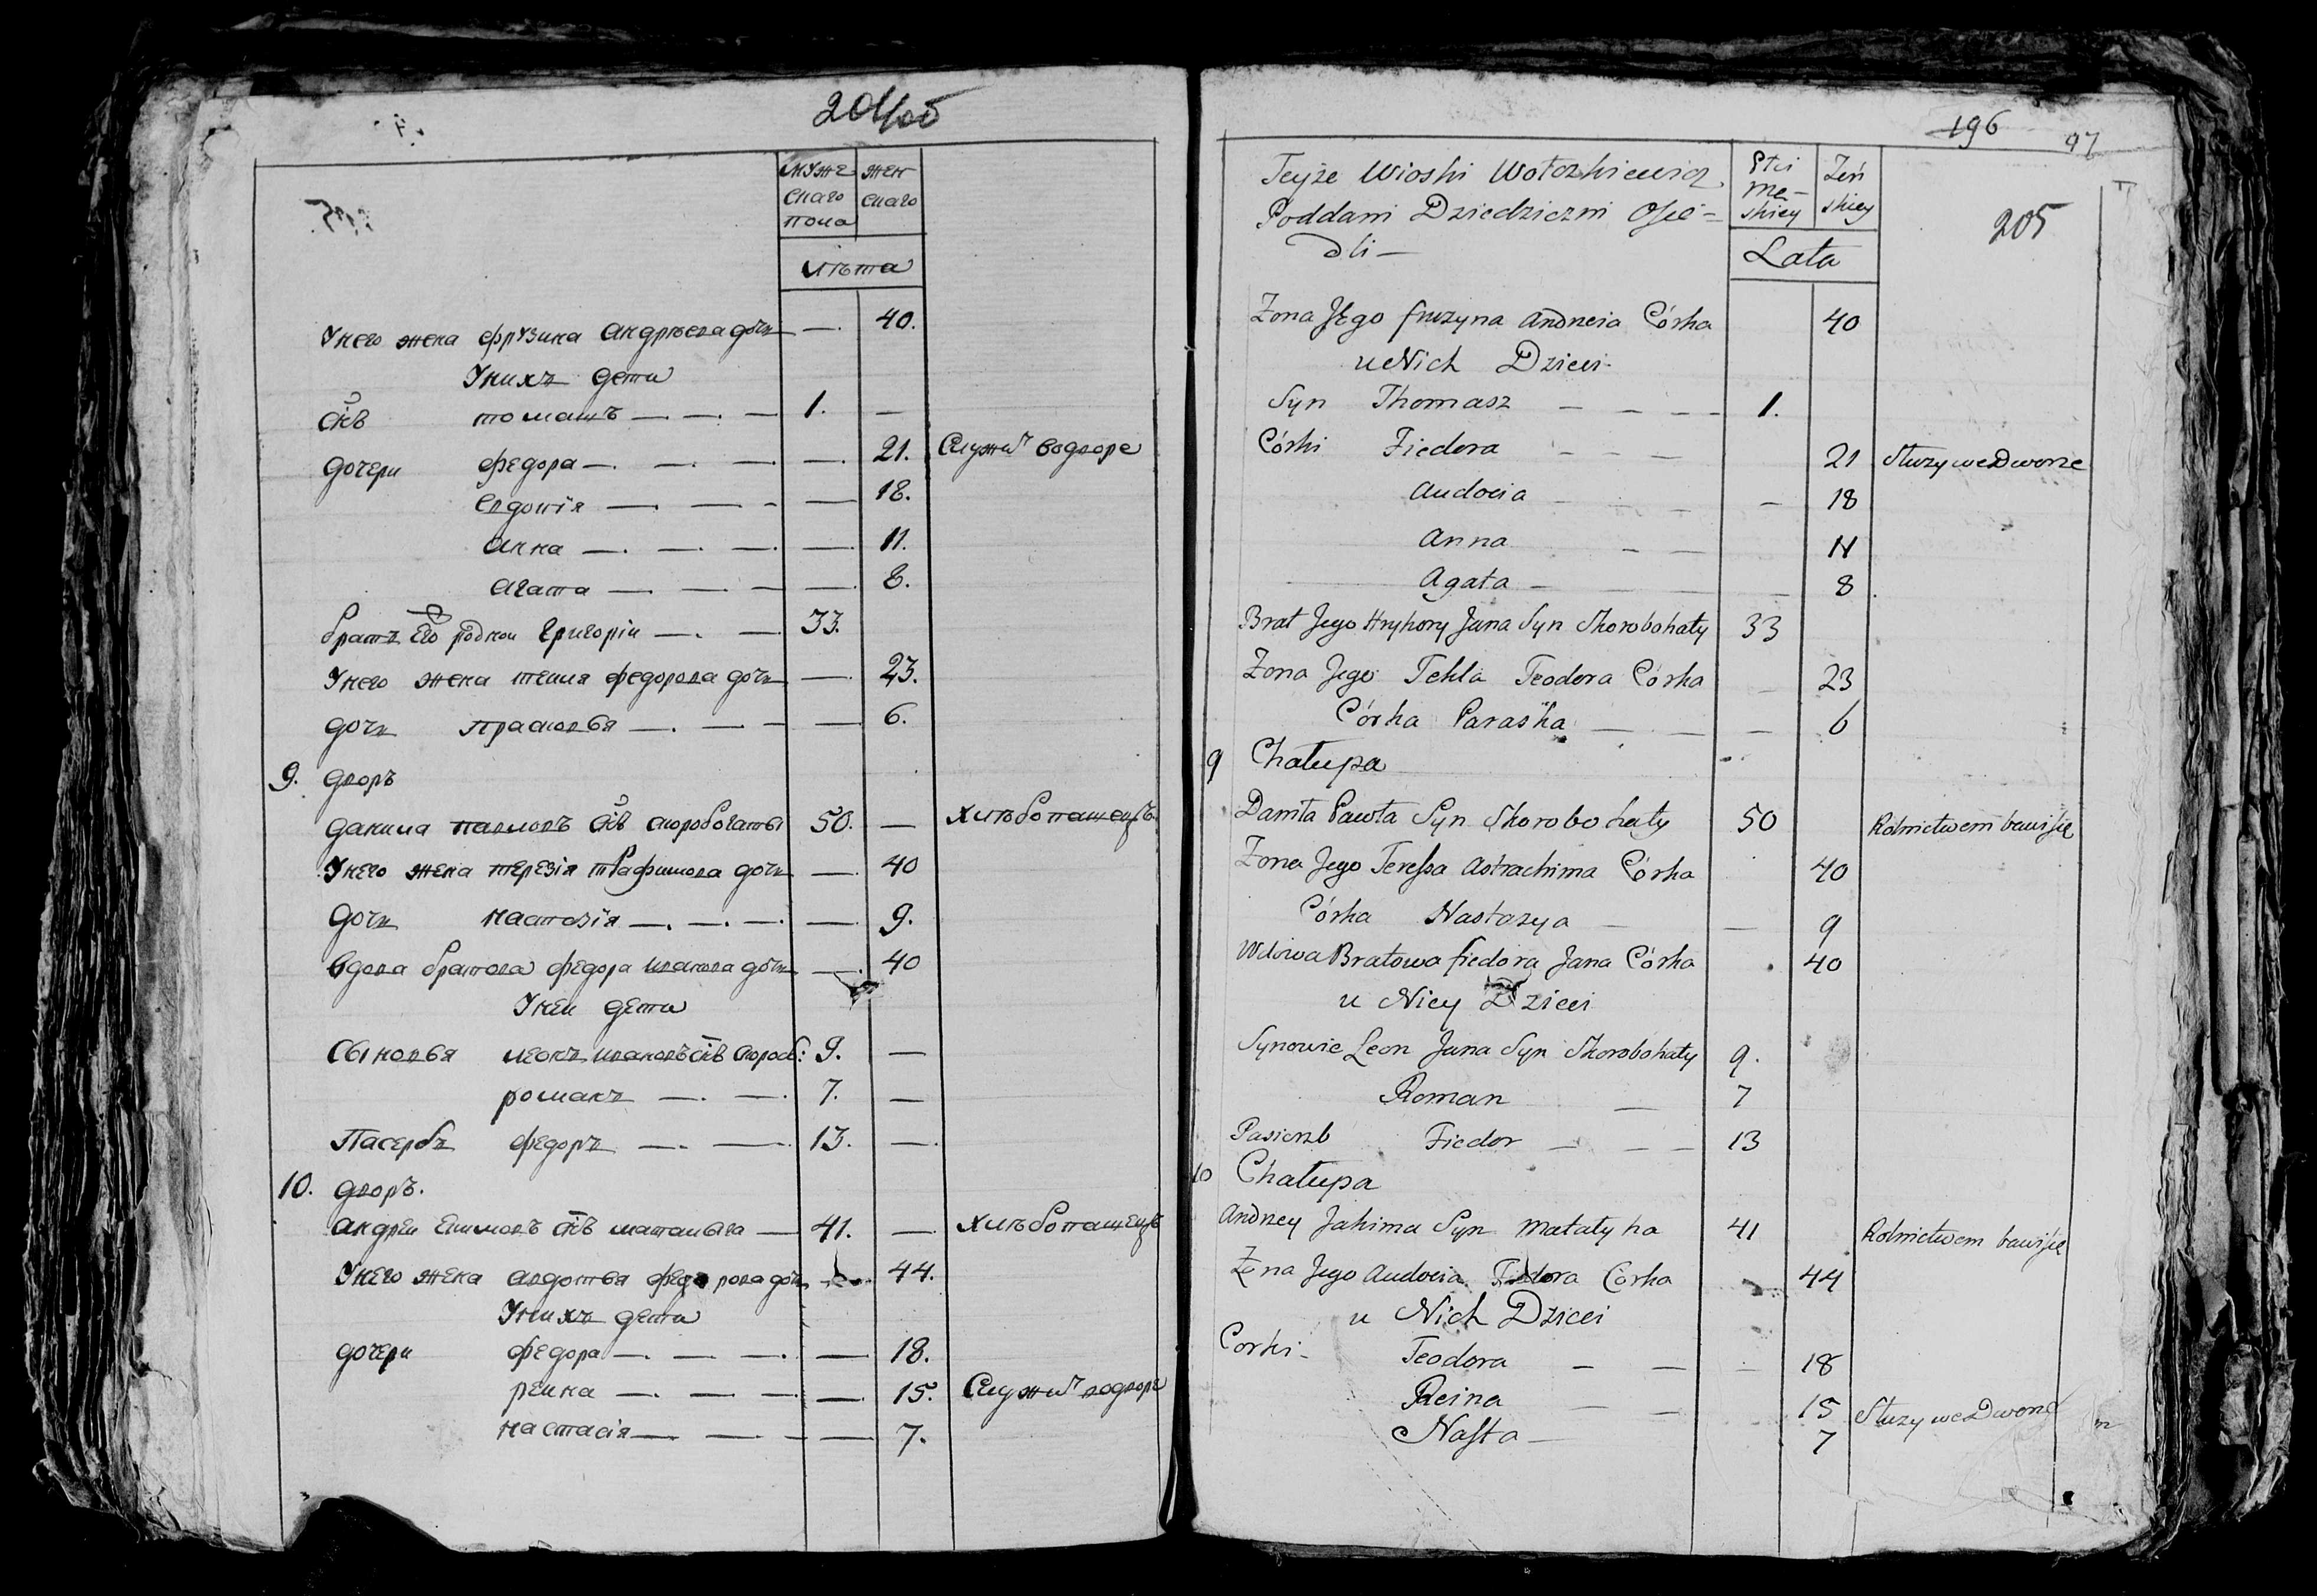 204/об
муже
скаго
пола
жен
скаго
лѣта
Унего жена фрузина андрѣева дочь — 40.
Унихъ дети
сн̃ъ томашъ — 1. —
дочери федора — — 21. Служит̾ водворе
евдокія — — 18.
анна — — 11.
агата — — 8.
братъ его родной григоріи — 33.
Унего жена текля федорова дочь — 23.
дочь прасковья — — 6.
9. дворъ
данила павловъ сн̃ъ скоробогаты 50. — хлѣбопашецъ
Унего жена терезія трафимова дочь — 40
дочь настазія — — 9.
вдова братова федора иванова дочь — 40
Унеи дети
Сыновья леонъ ивановъ сн̃ъ скороб: 9. —
романъ — 7. —
Пасербъ федоръ — 13. —
10. дворъ.
андреи якимовъ сн̃ъ маталыга — 41. — хлѣбопашецъ
Унего жена авдотья федорова дочь — 44.
Унихъ дети
дочери федора — — 18.
реина — — 15. Служит̾ водворе
настасія — — 7.
196
97
205
Teyże Wioski Wołczkiewicz
Poddani Dziedziczni Osie=
dli —
Płci
Mę-
skiey
Żeń
skiey
Lata
Żona Jego fruzyna Andrzeia Córka 40
u Nich Dzieci
Syn Thomasz — — — 1.
Córki Fiedora — — — 21 Służy we Dworze
Audocia — — — 18
Anna — — 11
Agata — — 8
Brat Jego Hryhory Jana Syn Skorobohaty 33
Żona Jego Tekla Teodora Córka — 23
Córka Paraśka — — — 6
9 Chałupa
Daniła Pawła Syn Skorobohaty 50 Rolnictwem bawi się
Żona Jego Teressa Astrachima Córka 40
Córka Nastazya — — 9
Wdowa Bratowa fiedora Jana Córka 40
u Niey Dzieci
Synowie Leon Jana Syn Skorobohaty 9.
Roman — 7
Pasierzb Fiedor — — — 13
10 Chałupa
Andrzey Jakima Syn Matałyha 41 Rolnictwem bawi się
Żona Jego Audocia Fiedora Córka 44
u Nich Dzieci
Corki - Teodora — — 18
Reina — — 15 Służy we Dworze
Nasta — 7